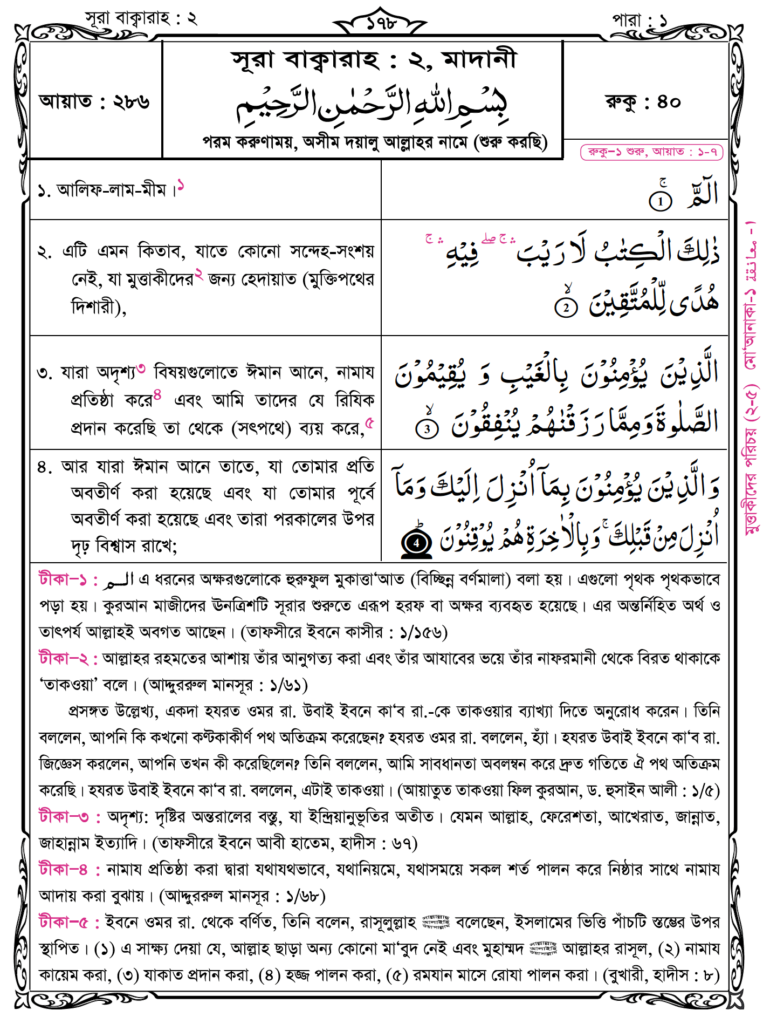 সূরা বাক্বারাহ : ২
১৭৮
পারা : ১
আয়াত : ২৮৬
সূরা বাক্বারাহ : ২, মাদানী
بِسْمِ اللهِ الرَّحْمٰنِ الرَّحِيْمِ
পরম করুণাময়, অসীম দয়ালু আল্লাহর নামে (শুরু করছি)
রুকু : ৪০
রুকু-১ শুরু, আয়াত : ১-৭
১. আলিফ-লাম-মীম।১
الٓمّٓ ۚ ①
২. এটি এমন কিতাব, যাতে কোনো সন্দেহ-সংশয়
নেই, যা মুত্তাকীদের২ জন্য হেদায়াত (মুক্তিপথের
দিশারী),
ذٰلِكَ الْكِتٰبُ لَا رَيْبَ ۛۚ ۖ فِيْهِ ۛۚ
هُدًى لِّلْمُتَّقِيْنَ ۙ ②
৩. যারা অদৃশ্য৩ বিষয়গুলোতে ঈমান আনে, নামায
প্রতিষ্ঠা করে৪ এবং আমি তাদের যে রিযিক
প্রদান করেছি তা থেকে (সৎপথে) ব্যয় করে,৫
الَّذِيْنَ يُؤْمِنُوْنَ بِالْغَيْبِ وَ يُقِيْمُوْنَ
الصَّلٰوةَ وَمِمَّا رَزَقْنٰهُمْ يُنْفِقُوْنَ ۙ ③
৪. আর যারা ঈমান আনে তাতে, যা তোমার প্রতি
অবতীর্ণ করা হয়েছে এবং যা তোমার পূর্বে
অবতীর্ণ করা হয়েছে এবং তারা পরকালের উপর
দৃঢ় বিশ্বাস রাখে;
وَالَّذِيْنَ يُؤْمِنُوْنَ بِمَآ اُنْزِلَ اِلَيْكَ وَمَآ
اُنْزِلَ مِنْ قَبْلِكَ ۚ وَبِالْاٰخِرَةِ هُمْ يُوْقِنُوْنَ ؕ ④
মুত্তাকীদের পরিচয় (২-৫) মো‘আনাকা-১ معانقة - ١
টীকা-১ : الــم এ ধরনের অক্ষরগুলোকে হুরুফুল মুকাত্তা‘আত (বিচ্ছিন্ন বর্ণমালা) বলা হয়। এগুলো পৃথক পৃথকভাবে
পড়া হয়। কুরআন মাজীদের ঊনত্রিশটি সূরার শুরুতে এরূপ হরফ বা অক্ষর ব্যবহৃত হয়েছে। এর অন্তর্নিহিত অর্থ ও
তাৎপর্য আল্লাহই অবগত আছেন। (তাফসীরে ইবনে কাসীর : ১/১৫৬)
টীকা-২ : আল্লাহর রহমতের আশায় তাঁর আনুগত্য করা এবং তাঁর আযাবের ভয়ে তাঁর নাফরমানী থেকে বিরত থাকাকে
‘তাকওয়া’ বলে। (আদ্দুররুল মানসূর : ১/৬১)
প্রসঙ্গত উল্লেখ্য, একদা হযরত ওমর রা. উবাই ইবনে কা‘ব রা.-কে তাকওয়ার ব্যাখ্যা দিতে অনুরোধ করেন। তিনি
বললেন, আপনি কি কখনো কণ্টকাকীর্ণ পথ অতিক্রম করেছেন? হযরত ওমর রা. বললেন, হ্যাঁ। হযরত উবাই ইবনে কা‘ব রা.
জিজ্ঞেস করলেন, আপনি তখন কী করেছিলেন? তিনি বললেন, আমি সাবধানতা অবলম্বন করে দ্রুত গতিতে ঐ পথ অতিক্রম
করেছি। হযরত উবাই ইবনে কা‘ব রা. বললেন, এটাই তাকওয়া। (আয়াতুত তাকওয়া ফিল কুরআন, ড. হুসাইন আলী : ১/৫)
টীকা-৩ : অদৃশ্য: দৃষ্টির অন্তরালের বস্তু, যা ইন্দ্রিয়ানুভূতির অতীত। যেমন আল্লাহ, ফেরেশতা, আখেরাত, জান্নাত,
জাহান্নাম ইত্যাদি। (তাফসীরে ইবনে আবী হাতেম, হাদীস : ৬৭)
টীকা-৪ : নামায প্রতিষ্ঠা করা দ্বারা যথাযথভাবে, যথানিয়মে, যথাসময়ে সকল শর্ত পালন করে নিষ্ঠার সাথে নামায
আদায় করা বুঝায়। (আদ্দুররুল মানসূর : ১/৬৮)
টীকা-৫ : ইবনে ওমর রা. থেকে বর্ণিত, তিনি বলেন, রাসূলুল্লাহ বলেছেন, ইসলামের ভিত্তি পাঁচটি স্তম্ভের উপর
স্থাপিত। (১) এ সাক্ষ্য দেয়া যে, আল্লাহ ছাড়া অন্য কোনো মা‘বুদ নেই এবং মুহাম্মদ আল্লাহর রাসূল, (২) নামায
কায়েম করা, (৩) যাকাত প্রদান করা, (৪) হজ্জ পালন করা, (৫) রমযান মাসে রোযা পালন করা। (বুখারী, হাদীস : ৮)